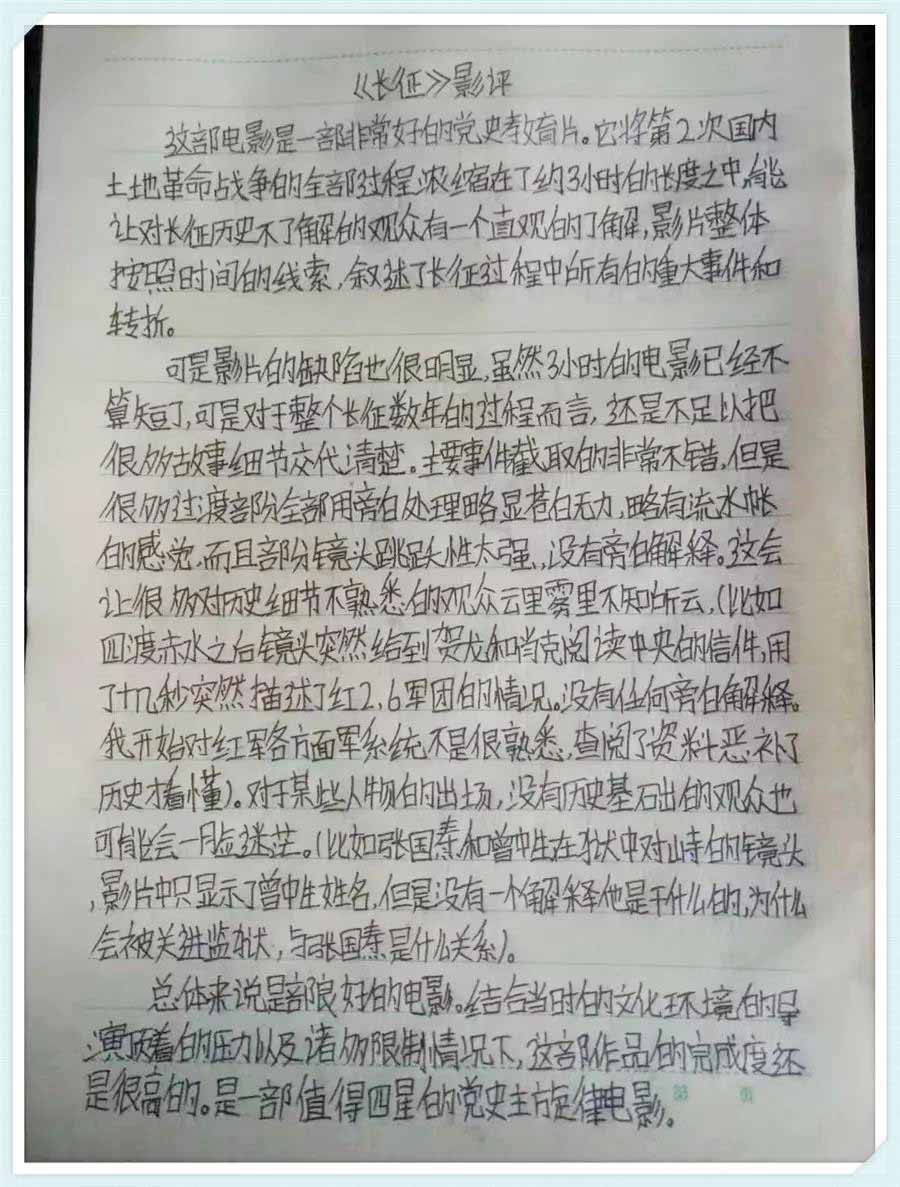 《长征》影评
这部电影是一部非常好的党史教育片。它将第2次国内
土地革命战争的全部过程浓缩在了约3小时的长度之中,能
让对长征历史不了解的观众有一个直观的了解,影片整体
按照时间的线索,叙述了长征过程中所有的重大事件和
转折。
可是影片的缺陷也很明显,虽然3小时的电影已经不
算短了,可是对于整个长征数年的过程而言,还是不足以把
很多故事细节交代清楚。主要事件截取的非常不错,但是
很多过渡部份全部用旁白处理略显苍白无力,略有流水帐
的感觉,而且部份镜头跳跃性太强,没有旁白解释。这会
让很多对历史细节不熟悉的观众云里雾里不知所云,(比如
四渡赤水之后镜头突然给到贺龙和肖克阅读中央的信件,用
了十几秒突然描述了红2,6军团的情况。没有任何旁白解释。
我开始对红军各方面军系统不是很熟悉,查阅了资料恶补了
历史才看懂)。对于某些人物的出场,没有历史基础的观众也
可能会一脸迷茫。(比如张国焘和曾中生在狱中对峙的镜头
,影片中只显示了曾中生姓名,但是没有一个解释他是干什么的,为什么
会被关进监狱,与张国焘是什么关系)。
总体来说是部良好的电影。结合当时的文化环境的导
演顶着的压力以及诸多限制情况下,这部作品的完成度还
是很高的。是一部值得四星的党史主旋律电影。
第 页